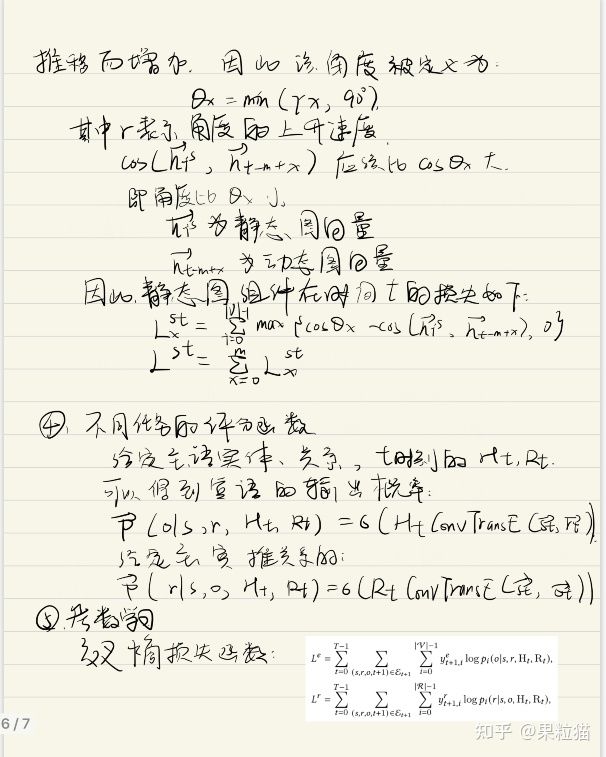 推移而增加. 因此该角度被定义为:
θx = min (γx, 90°),
其中r表示角度的上升速度
cos(h⃗ᵢˢ, h⃗t-m+x) 应该比 cosθx 大.
即角度比 θx 小
h⃗ᵢˢ 为静态图向量
h⃗t-m+x 为动态图向量
因此静态图组件在时间t的损失如下:
Lₓˢᵗ = Σ_{i=0}^{|V|-1} max {cosθx - cos(h⃗ᵢˢ, h⃗t-m+x), 0}
Lˢᵗ = Σ_{x=0}^{m} Lₓˢᵗ
④. 不同任务的评分函数
给定主语实体、关系, t时刻的 Ht, Rt.
可以得到宾语的输出概率:
P⃗ (o|s,r, Ht, Rt) = 6 (Ht ConvTransE (s⃗t, r⃗t))
给定主宾推关系的:
P⃗ (r|s,o, Ht, Rt) = 6 (Rt ConvTransE (s⃗t, o⃗t))
⑤. 参数学习
交叉熵损失函数:
Lᵉ = Σ_{t=0}^{T-1} Σ_{(s,r,o,t+1)∈ℰt+1} Σ_{i=0}^{|𝒱|-1} yᵉt+1,i log pi(o|s, r, Ht, Rt),
Lʳ = Σ_{t=0}^{T-1} Σ_{(s,r,o,t+1)∈ℰt+1} Σ_{i=0}^{|ℛ|-1} yʳt+1,i log pi(r|s, o, Ht, Rt),
6 / 7
知乎 @果粒猫